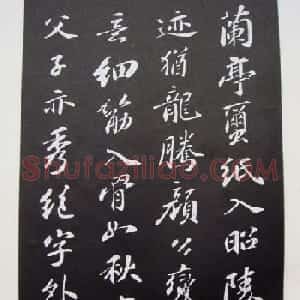 蘭亭蠒紙入昭陵
迹猶龍騰顏公變
意細筋入骨如秋
父子亦秀絕字外
Shufaziliao.COM